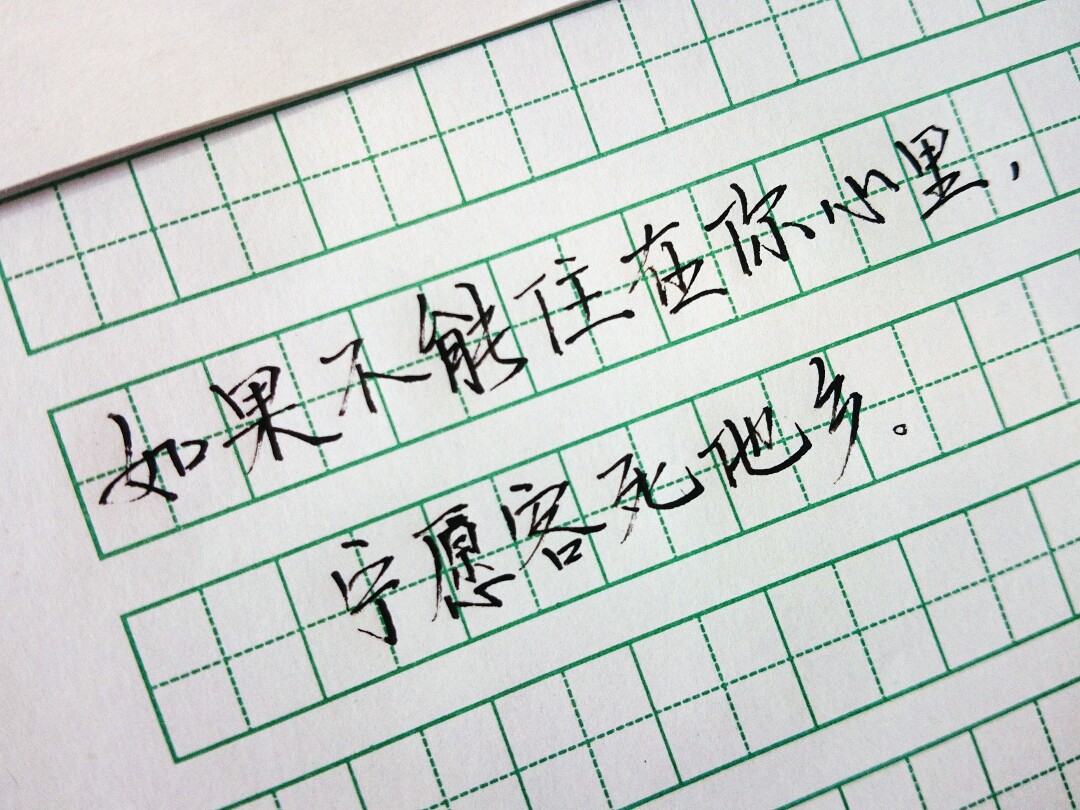 如果不能住在你心里,
宁愿客死他乡。